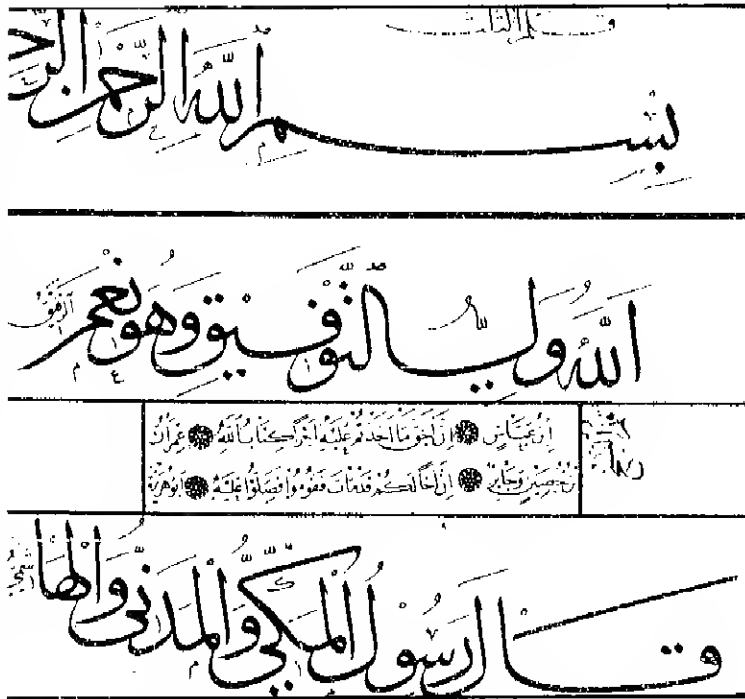 قلم الثلث
بِسْمِ اللهِ الرَّحْمٰنِ الرَّحـ
اَللهُ وَلِيُّ التَّوْفِيقِ وَهُوَ نِعْمَ الرَّفِيقُ
اِبْنُ عَبَّاسٍ اِنَّ اَحَقَّ مَا اَخَذْتُمْ عَلَيْهِ اَجْرًا كِتَابُ اللهِ عِمْرَانُ
بْنُ حُصَيْنٍ وَجَابِرٌ اِنَّ اَخًا لَكُمْ قَدْ مَاتَ فَقُومُوا فَصَلُّوا عَلَيْهِ اَبُو هُرَيْرَةَ
قَالَ رَسُولُ الْمَكِّيُّ وَالْمَدَنِيُّ وَالْهَاشِمِيُّ